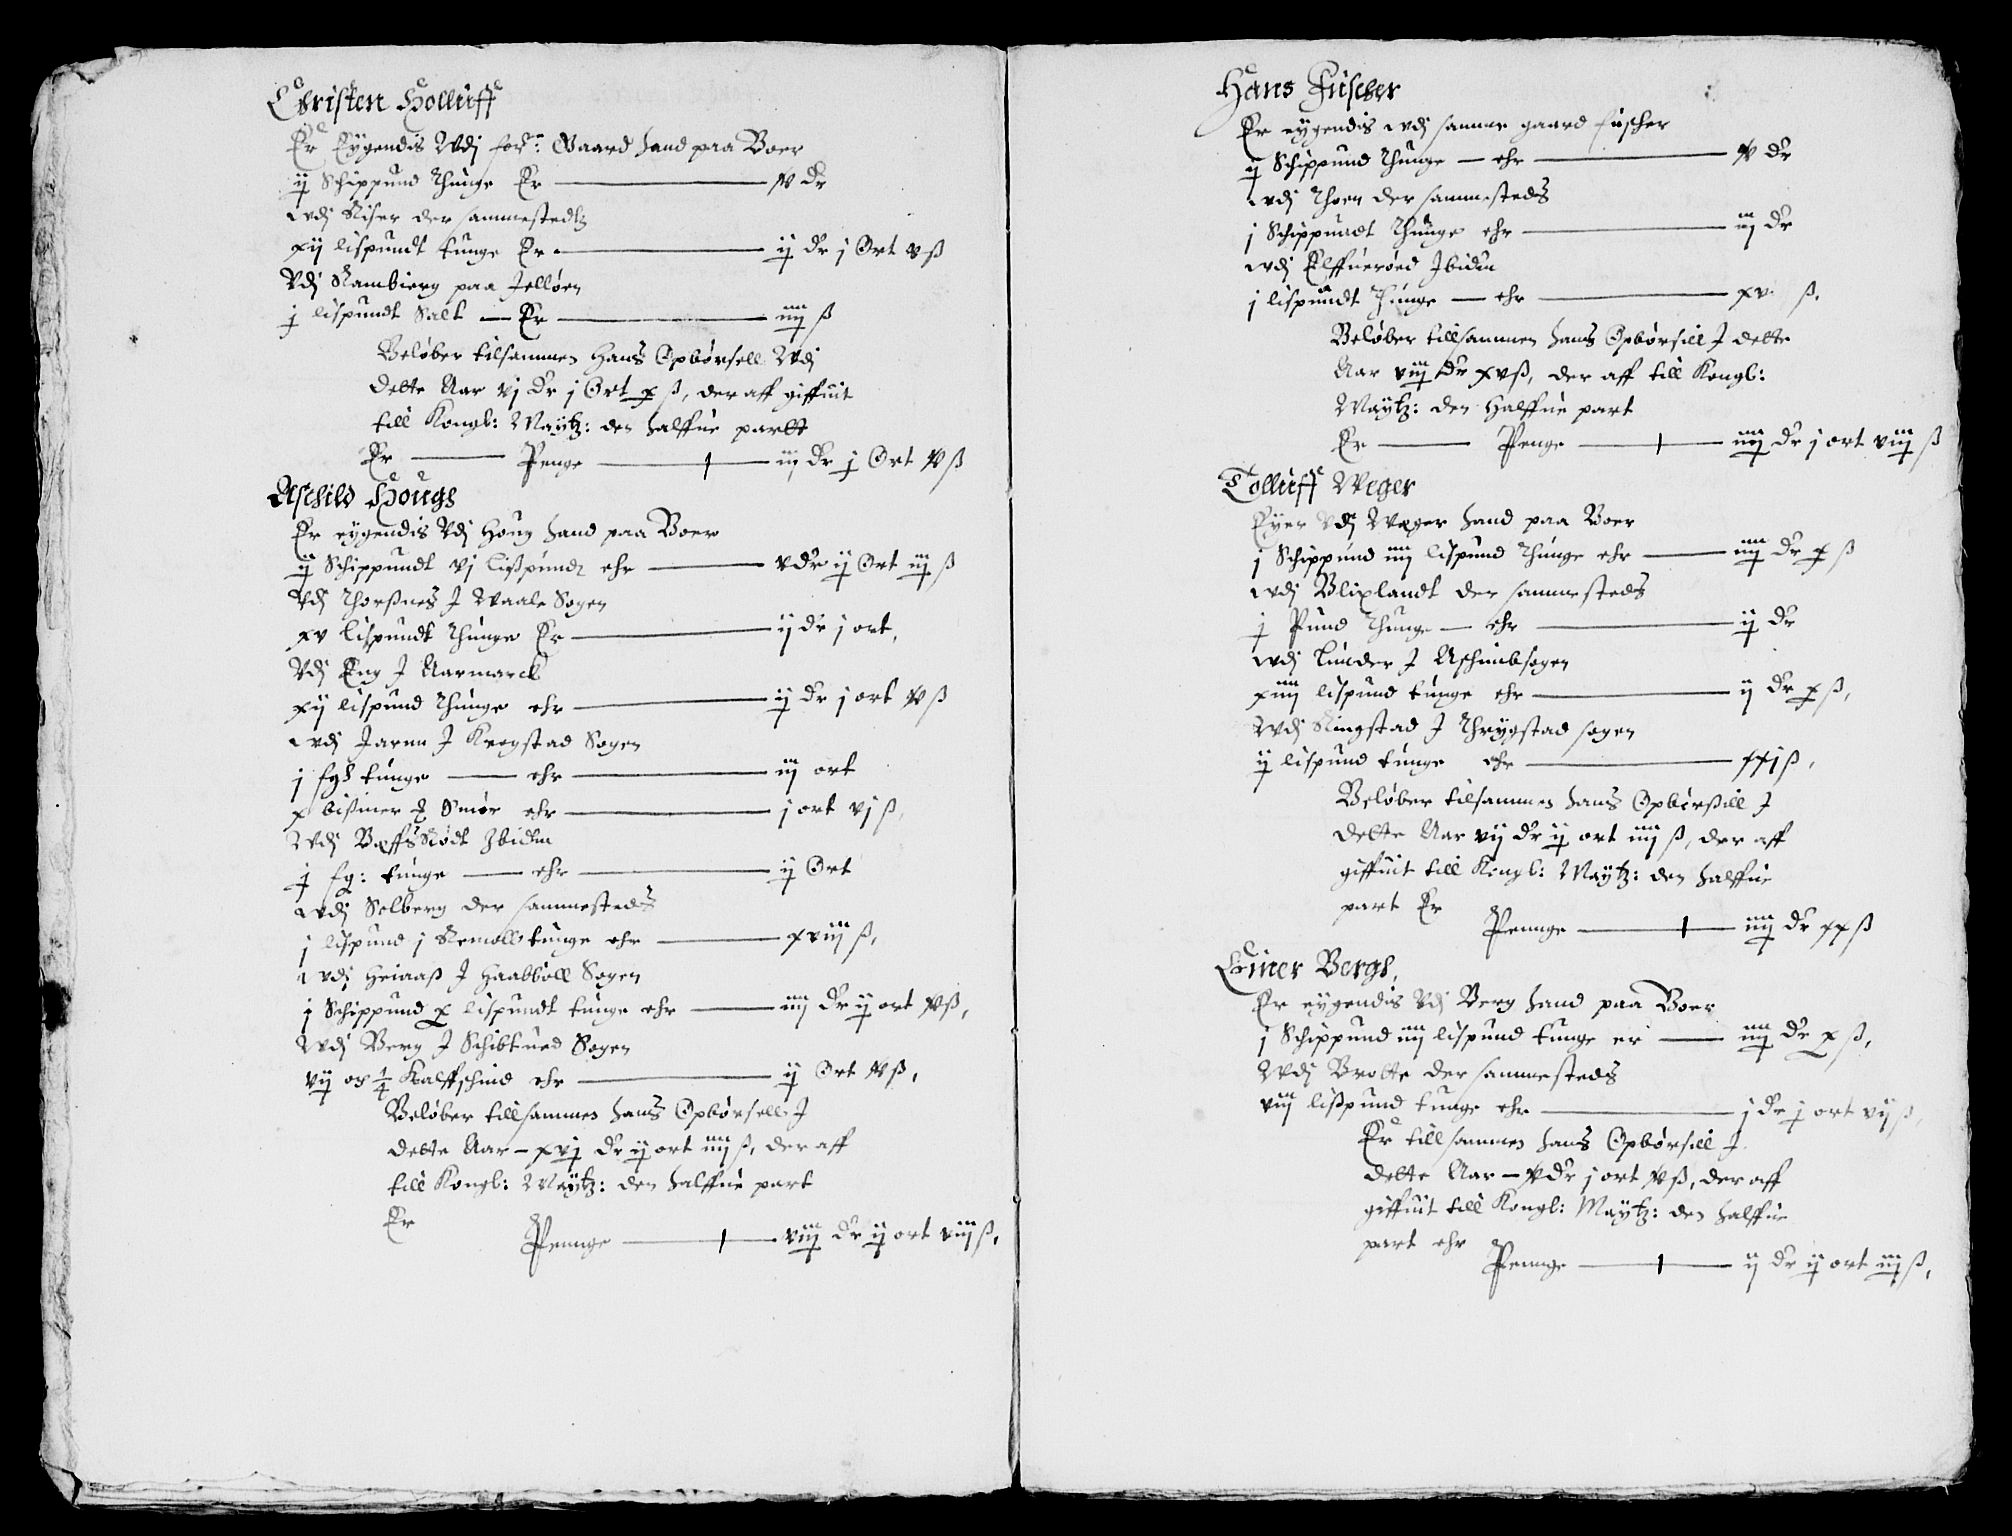 Christen Holluff
Er Eygendis Vdj for:ne Gaard hand paa Boer
ij Schippund Thunge Er — v dr
vdj Riser der sammestedtz
xij lispundt tunge Er — ij dr j Ort v ß
Vdj Rambierg paa Jelløen
j lispundt Salt — Er — iiij ß
Beløber tilsammen Hans Opbørsell Vdj
dette Aar vj dr j Ort x ß, der aff giffuit
till Kongl: Maytz: den halffue partt
Er — Penge — iij dr j Ort v ß
Aschild Hougs
Er eygendis Vdj Houg hand paa Boer
ij Schippundt vj lißpund ehr — v dr ij Ort iij ß
Vdj Thorßnes J Waale Sogen
xv lispundt Thunge Er — ij dr j ort,
Vdj Eng J Aarmarck
xij lispund Thunge ehr — ij dr j ort v ß
vdj Jarnn J Krogstad Sogen
j fgs tunge — ehr — iij ort
x bismer Smør ehr — j ort vj ß,
Vdj Ibidem
j fg: tunge — ehr — ij Ort
vdj Solberg der sammesteds
j lispund j Remoll tunge ehr — xviij ß,
vdj Heiaaß J Haabbøll Sogen
j Schippund x lispundt tunge ehr — iiij dr ij ort v ß,
Vdj Berg J Schibtued Sogen
vij og 1/4 Kalffschind ehr — ij Ort v ß,
Beløber tillsammen hans Opbørsell J
dette Aar – xvj dr ij ort iiij ß, der aff
till Kongl: Maytz: den halffue part
Er
Pennge — viij dr ij ort viij ß,
Hans Fuscher
Er eygendis vdj samme gaard fuscher
ij Schippund Thunge — ehr — v dr
vdj Thoen der sammesteds
j Schippundt Thunge ehr — iij dr
vdj Elffuerøed Ibidem
j lispundt Tunge — ehr — xv ß,
Beløber tillsammen hans Opbørsill J dette
Aar viij dr xv ß, der aff till Kongl:
Maytz: den Halffue part
Er — Penge — iiij dr j ort viij ß
Tolluff Weger
Eyer Vdj Wæger hand paa Boer
j Schippund iiij lispund Thunge ehr — iiij dr x ß
vdj Blixlandt der sammesteds
j Pund Thunge — ehr — ij dr
vdj Lunder J Aschimbsogen
xiiij lispund tunge ehr — ij dr x ß,
Vdj Ringstad J Thrygstad sogen
ij lispund tunge ehr — xxj ß,
Beløber tilsammen hans Opbørßill J
dette Aar vij dr ij ort iiij ß, der aff
giffuit till Kongl: Maytz: den halffue
part Er
Pennge — iiij dr xx ß
Einer Bergs,
Er eygendis Vdj Berg hand paa Boer
j Schippund iiij lispund tunge er — iiij dr x ß,
Vdj Brotte der sammesteds
viij lißpund tunge ehr — j dr j ort vij ß,
Er tillsammen hans Opbørsill J
dette Aar – v dr j ort v ß, der aff
giffuit till Kongl: Maytz: den halffue
part ehr
Pennge — ij dr ij ort iij ß,